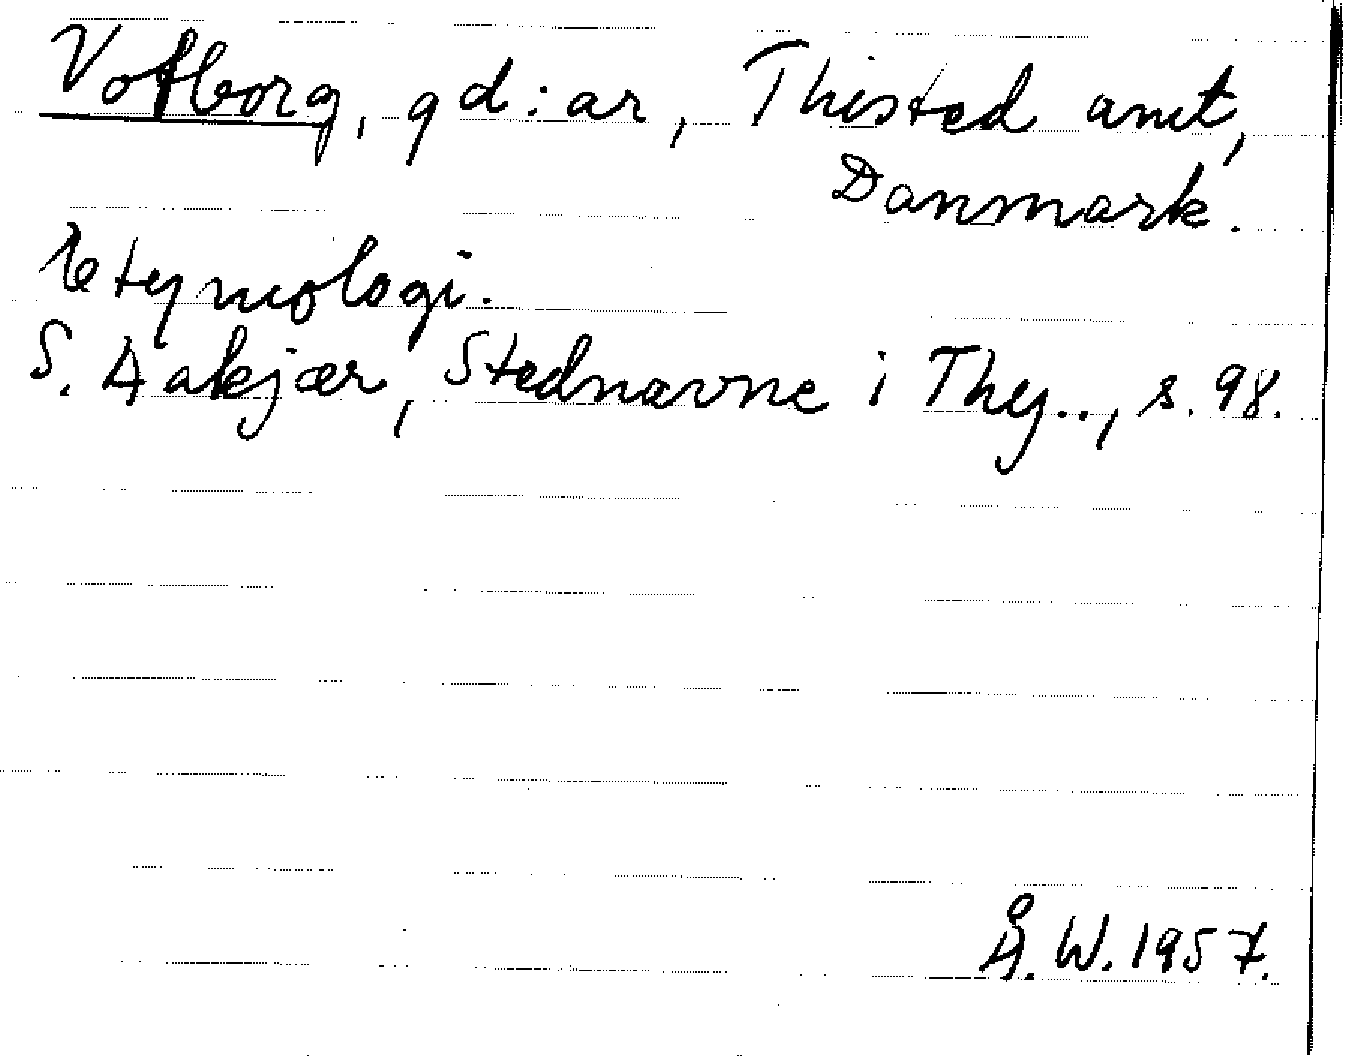 Votborg, gd:ar, Thisted amt,
Danmark.
Etymologi.
S. Aakjær, Stednavne i Thy.., s. 98.
Å. W. 1957.